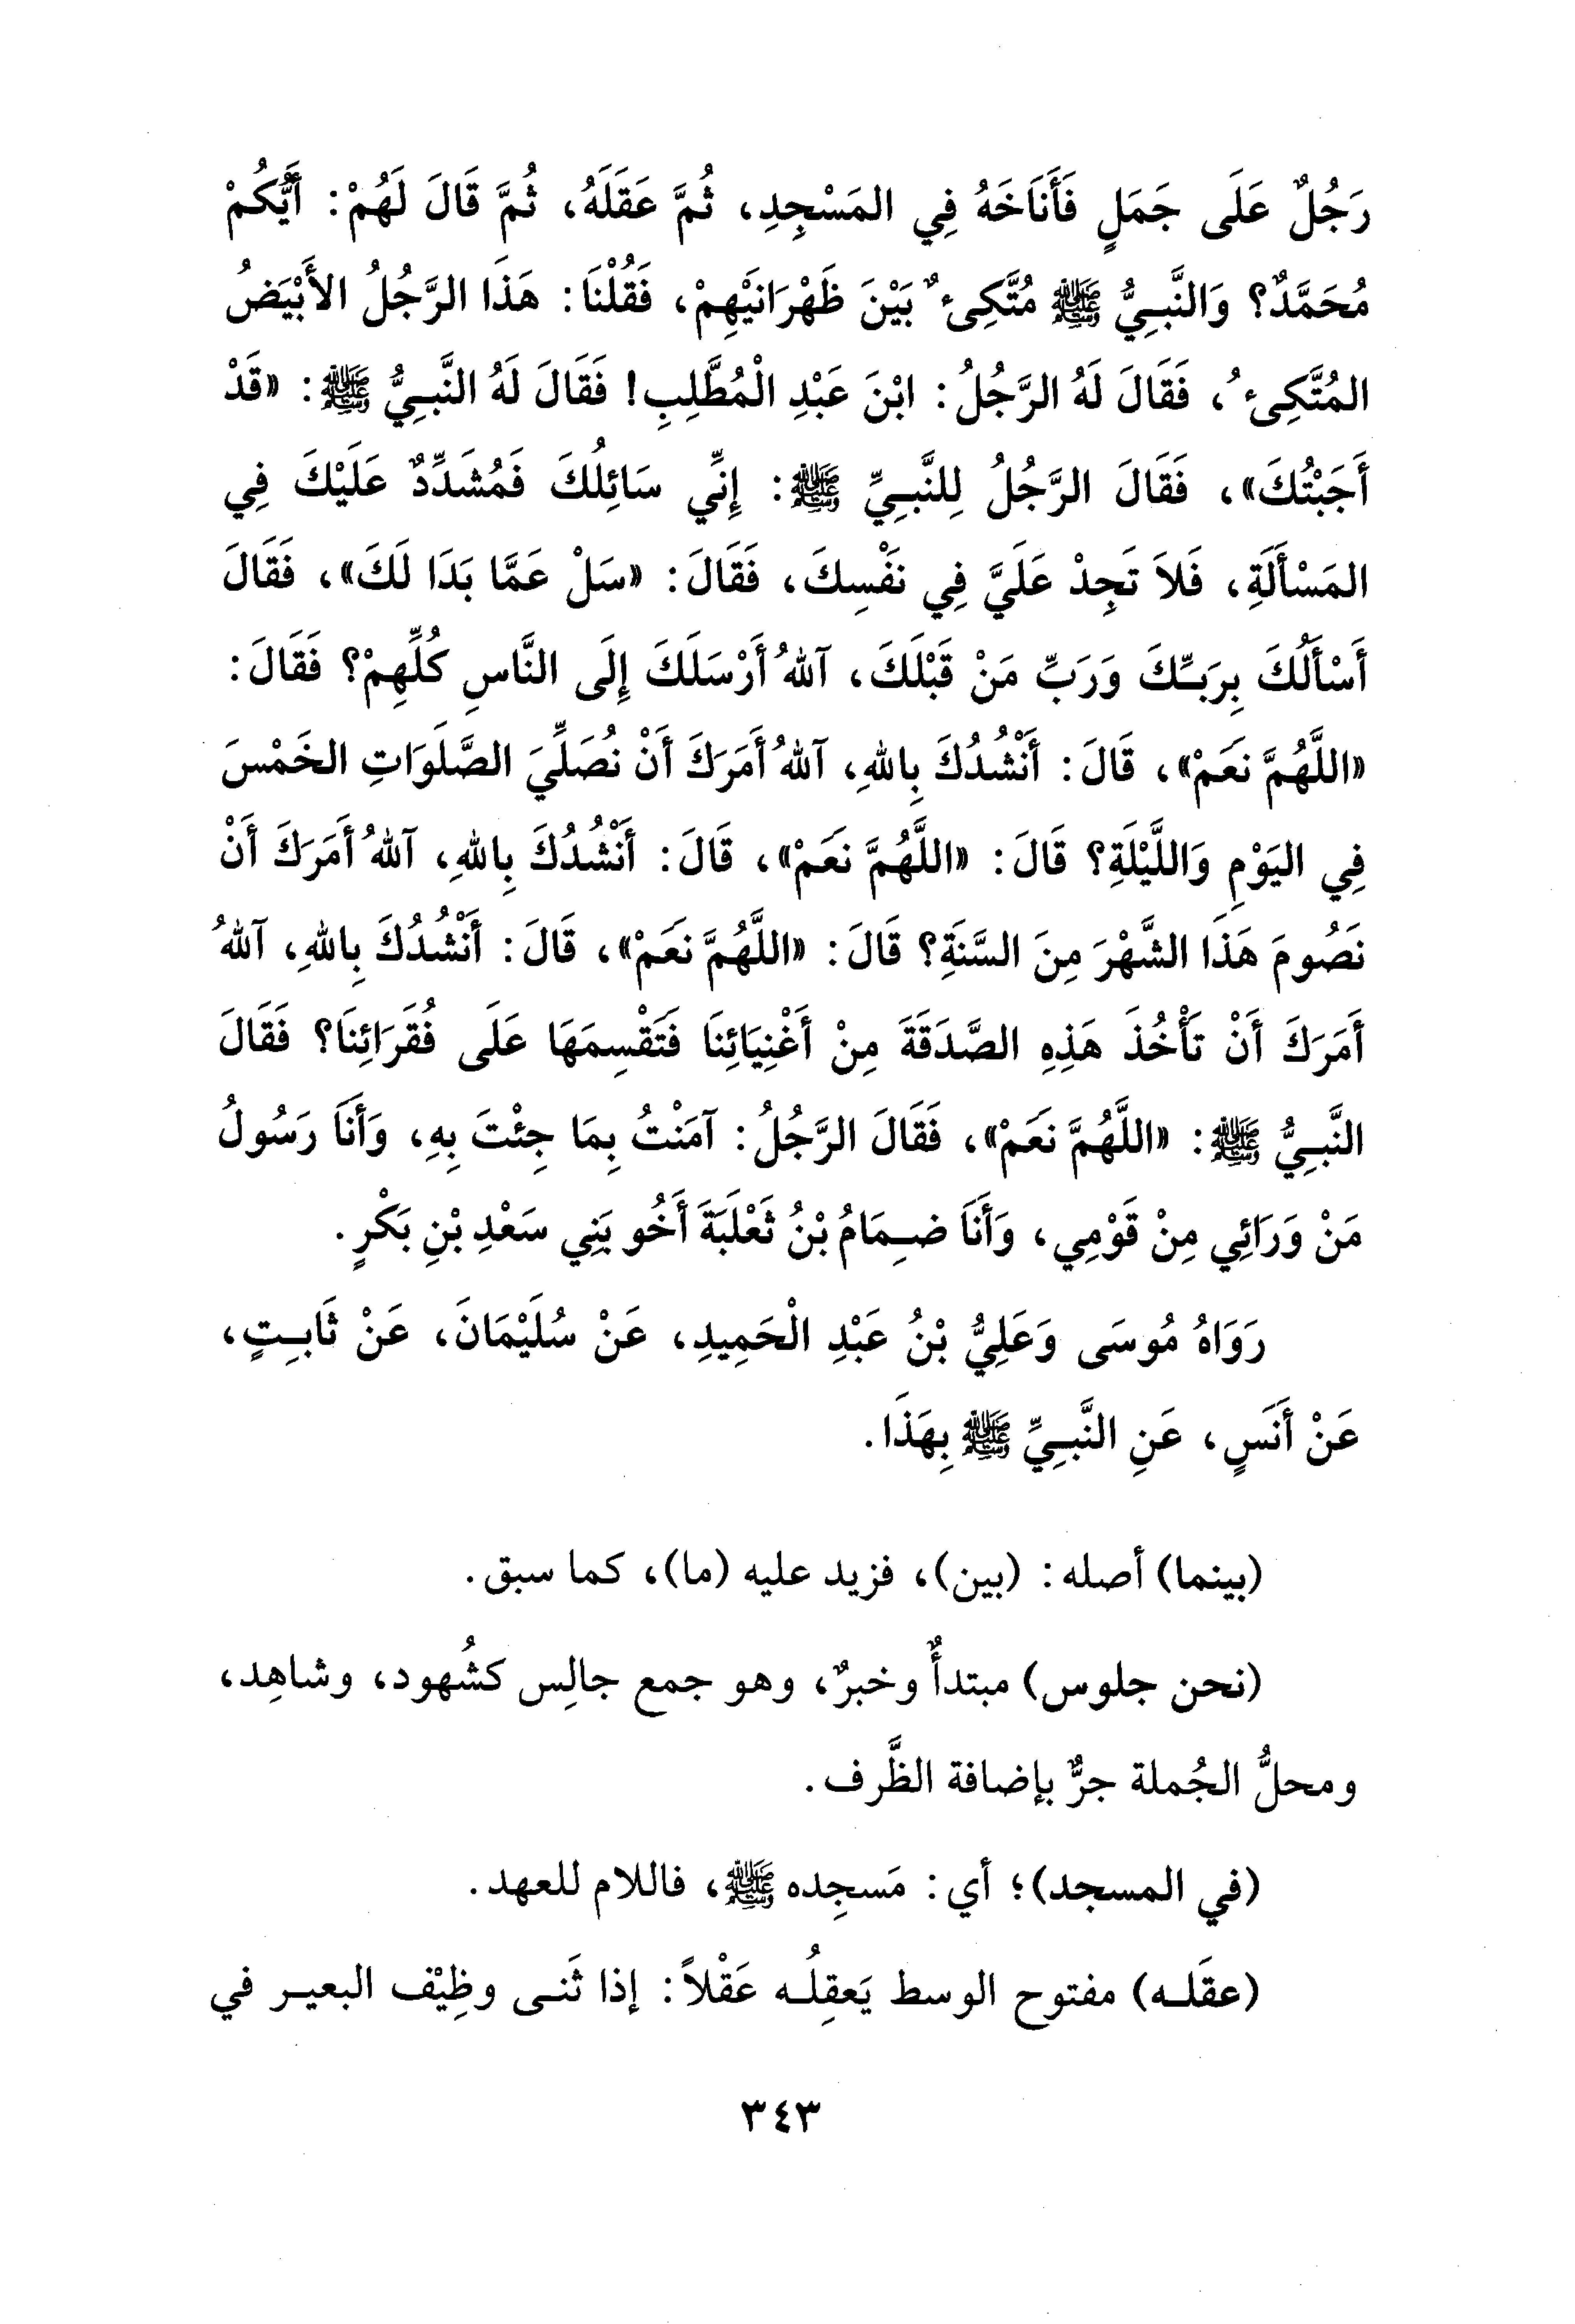 رَجُلٌ عَلَى جَمَلٍ فَأَنَاخَهُ فِي المَسْجِدِ، ثُمَّ عَقَلَهُ، ثُمَّ قَالَ لَهُمْ: أَيُّكُمْ
مُحَمَّدٌ؟ وَالنَّبِيُّ ﷺ مُتَّكِىءٌ بَيْنَ ظَهْرَانَيْهِمْ، فَقُلْنَا: هَذَا الرَّجُلُ الأَبْيَضُ
المُتَّكِىءُ، فَقَالَ لَهُ الرَّجُلُ: ابْنَ عَبْدِ الْمُطَّلِبِ! فَقَالَ لَهُ النَّبِيُّ ﷺ: «قَدْ
أَجَبْتُكَ»، فَقَالَ الرَّجُلُ لِلنَّبِيِّ ﷺ: إِنِّي سَائِلُكَ فَمُشَدِّدٌ عَلَيْكَ فِي
المَسْأَلَةِ، فَلاَ تَجِدْ عَلَيَّ فِي نَفْسِكَ، فَقَالَ: «سَلْ عَمَّا بَدَا لَكَ»، فَقَالَ
أَسْأَلُكَ بِرَبِّكَ وَرَبِّ مَنْ قَبْلَكَ، آللهُ أَرْسَلَكَ إِلَى النَّاسِ كُلِّهِمْ؟ فَقَالَ:
«اللَّهُمَّ نَعَمْ»، قَالَ: أَنْشُدُكَ بِاللهِ، آللهُ أَمَرَكَ أَنْ نُصَلِّيَ الصَّلَوَاتِ الخَمْسَ
فِي اليَوْمِ وَاللَّيْلَةِ؟ قَالَ: «اللَّهُمَّ نَعَمْ»، قَالَ: أَنْشُدُكَ بِاللهِ، آللهُ أَمَرَكَ أَنْ
نَصُومَ هَذَا الشَّهْرَ مِنَ السَّنَةِ؟ قَالَ: «اللَّهُمَّ نَعَمْ»، قَالَ: أَنْشُدُكَ بِاللهِ، آللهُ
أَمَرَكَ أَنْ تَأْخُذَ هَذِهِ الصَّدَقَةَ مِنْ أَغْنِيَائِنَا فَتَقْسِمَهَا عَلَى فُقَرَائِنَا؟ فَقَالَ
النَّبِيُّ ﷺ: «اللَّهُمَّ نَعَمْ»، فَقَالَ الرَّجُلُ: آمَنْتُ بِمَا جِئْتَ بِهِ، وَأَنَا رَسُولُ
مَنْ وَرَائِي مِنْ قَوْمِي، وَأَنَا ضِمَامُ بْنُ ثَعْلَبَةَ أَخُو بَنِي سَعْدِ بْنِ بَكْرٍ.
رَوَاهُ مُوسَى وَعَلِيُّ بْنُ عَبْدِ الْحَمِيدِ، عَنْ سُلَيْمَانَ، عَنْ ثَابِتٍ،
عَنْ أَنَسٍ، عَنِ النَّبِيِّ ﷺ بِهَذَا.
(بينما) أصله: (بين)، فزيد عليه (ما)، كما سبق.
(نحن جلوس) مبتدأٌ وخبرٌ، وهو جمع جالِس كشُهود، وشاهِد،
ومحلُّ الجُملة جرٌّ بإضافة الظَّرف.
(في المسجد)؛ أي: مَسجِده ﷺ، فاللام للعهد.
(عقَلـه) مفتوح الوسط يَعقِلُـه عَقْلاً: إذا ثَنـى وظِيْف البعيـر في
٣٤٣